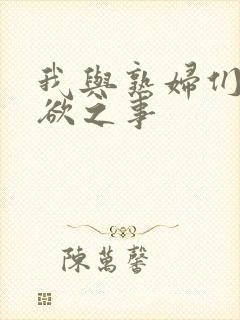 我與熟婦们
欲之事
陳萬馨